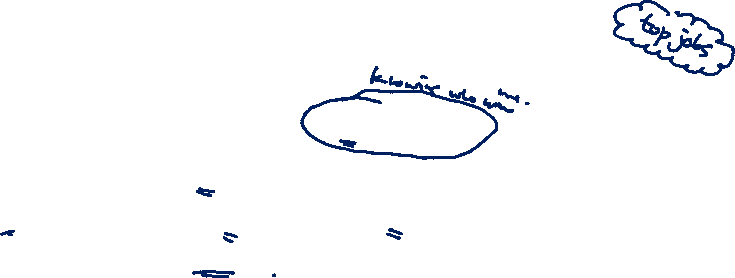 top jobs
knowing who